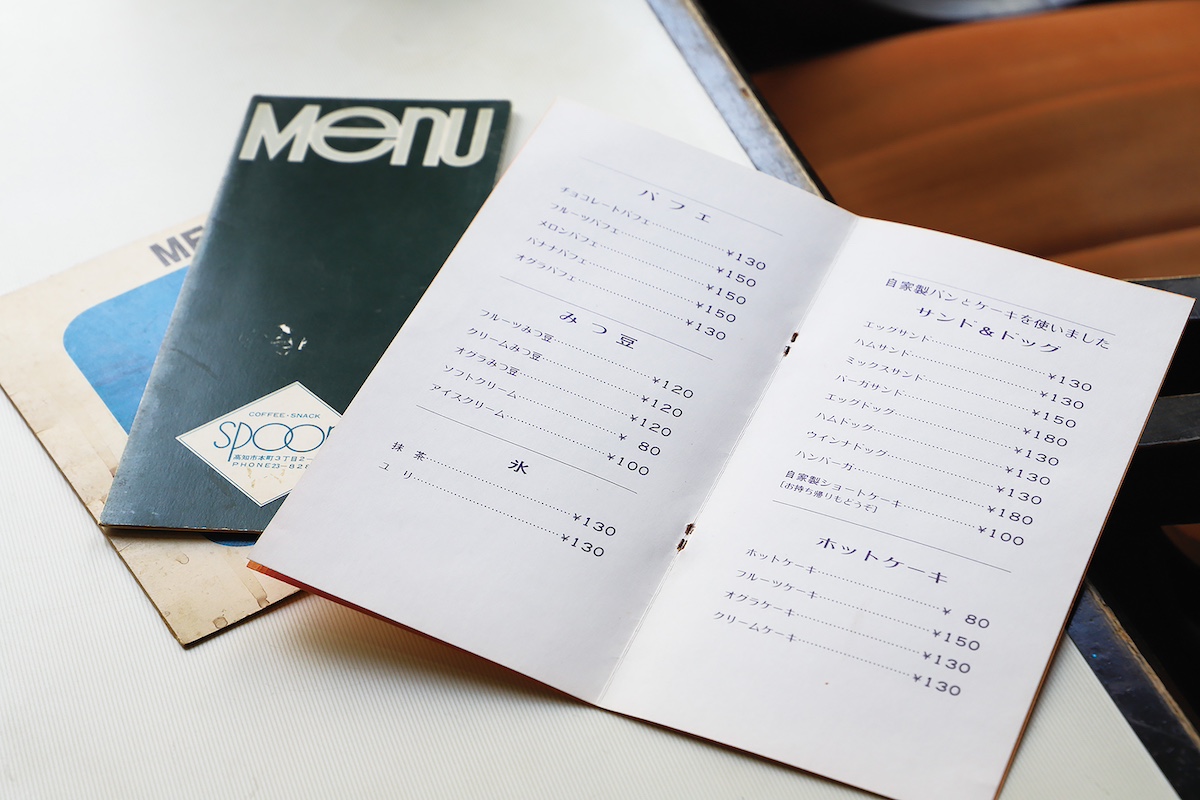 MENU
ME
COFFEE-SNACK
spoon
高知市本町3丁目2-
PHONE23-828
パフェ
チョコレートパフェ……¥130
フルーツパフェ……¥150
メロンパフェ……¥150
バナナパフェ……¥150
オグラパフェ……¥130
みつ豆
フルーツみつ豆……¥120
クリームみつ豆……¥120
オグラみつ豆……¥120
ソフトクリーム……¥ 80
アイスクリーム……¥100
氷
抹 茶……¥130
ユ リ……¥130
自家製パンとケーキを使いました
サンド&ドッグ
エッグサンド……¥130
ハムサンド……¥130
ミックスサンド……¥150
バーガサンド……¥180
エッグドッグ……¥130
ハムドッグ……¥130
ウインナドッグ……¥130
ハンバーガ……¥180
自家製ショートケーキ……¥100
[お持ち帰りもどうぞ]
ホットケーキ
ホットケーキ……¥ 80
フルーツケーキ……¥150
オグラケーキ……¥130
クリームケーキ……¥130